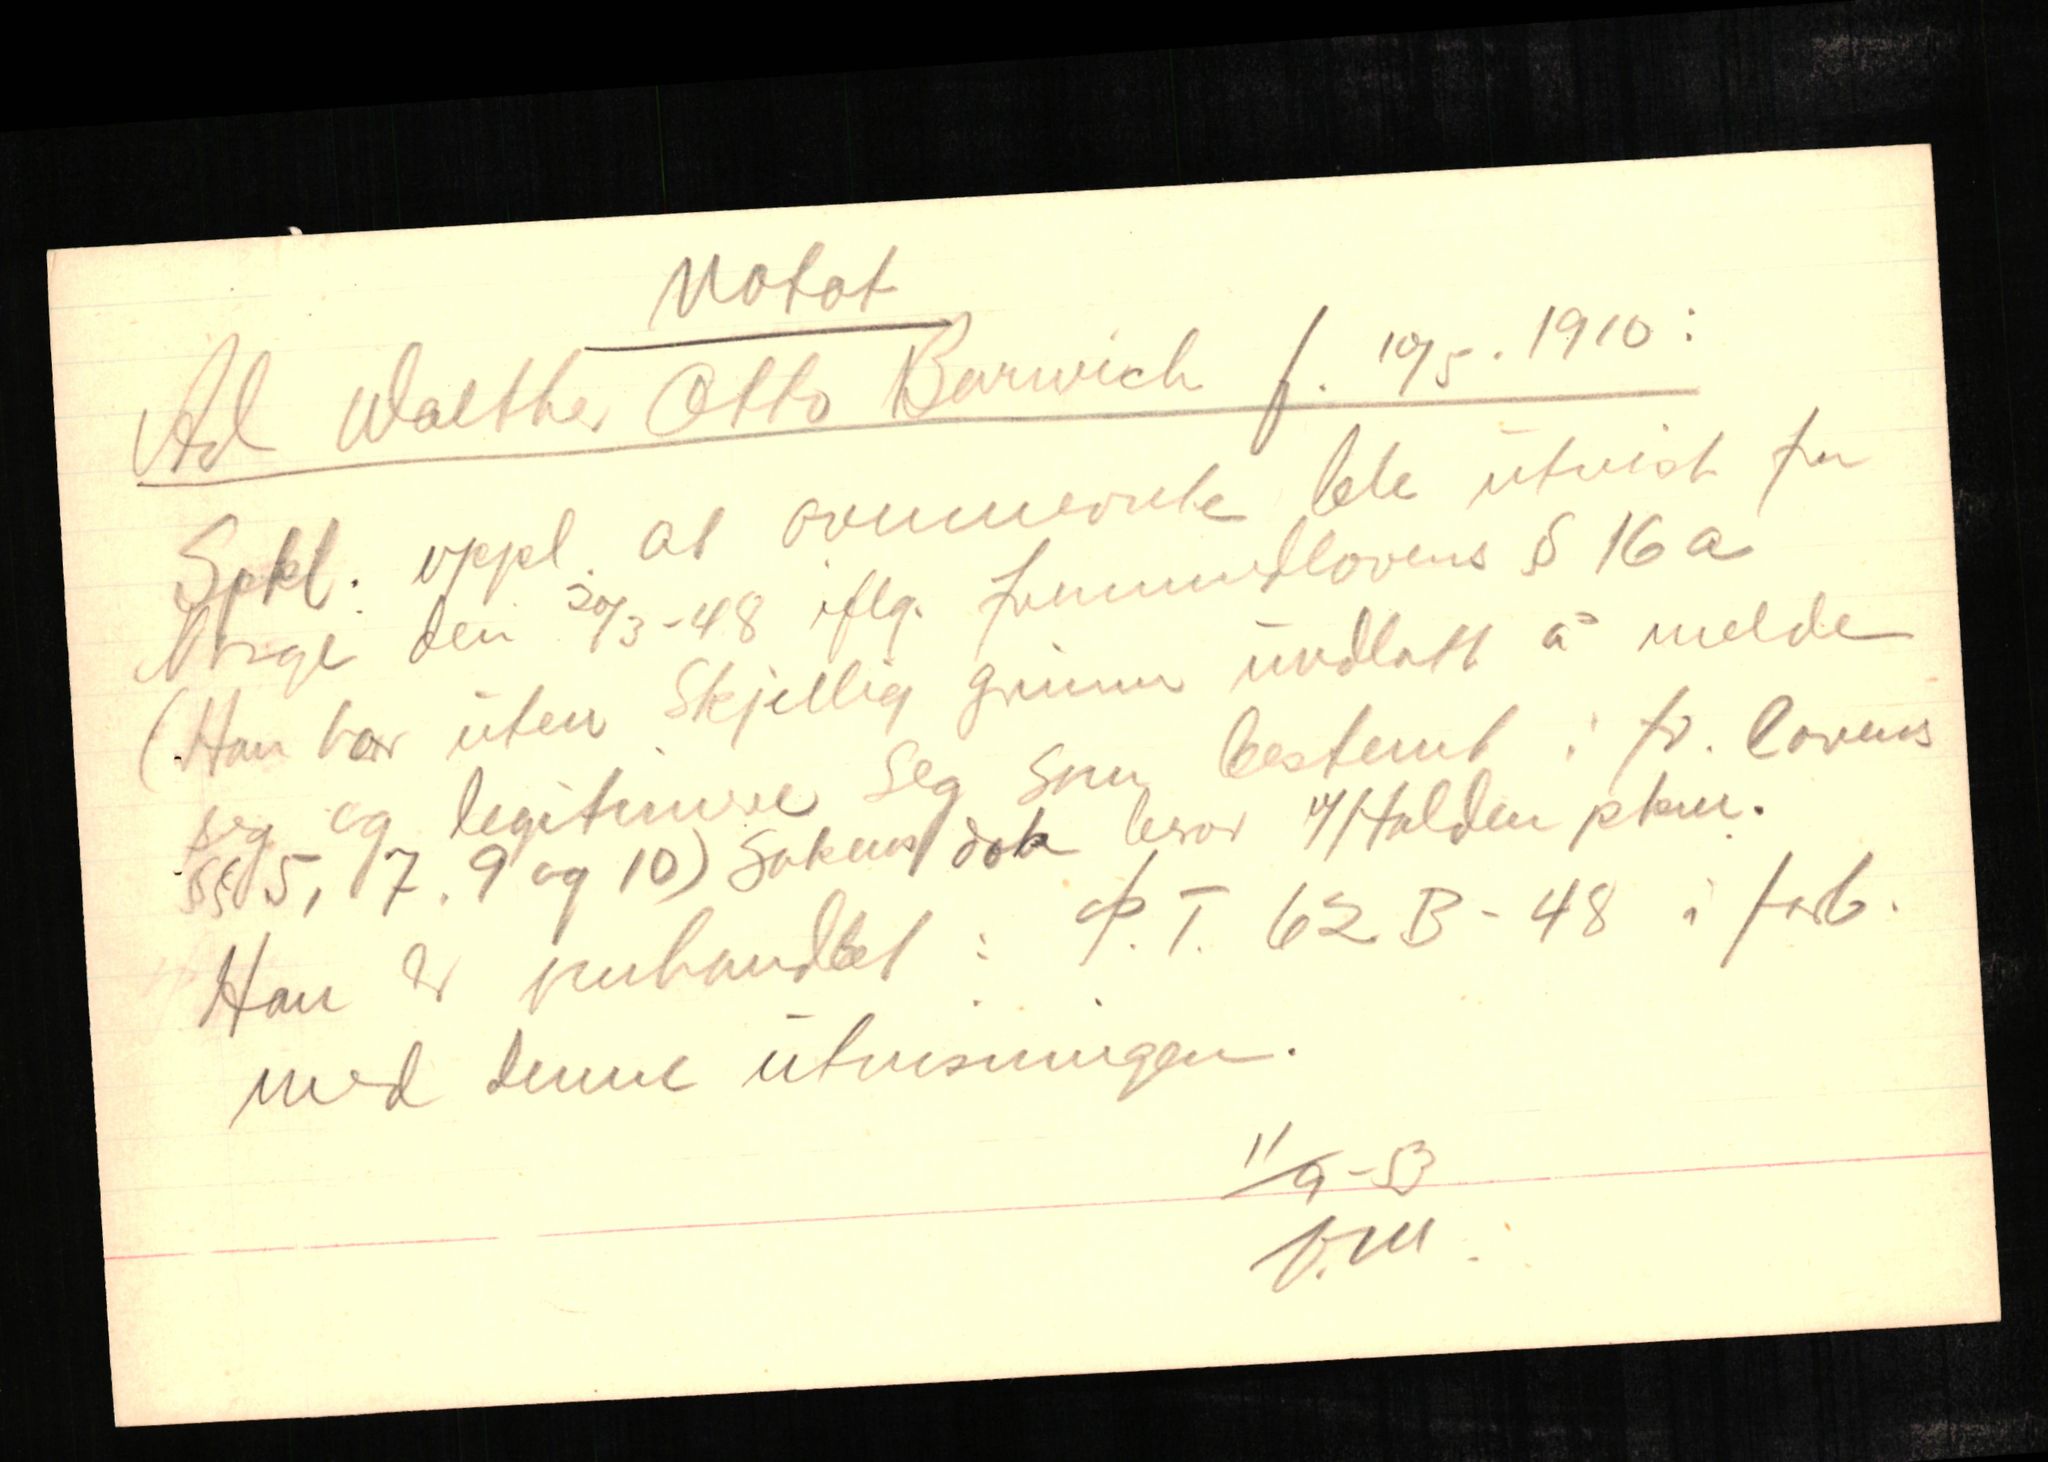 Notat
Ad Walther Otto Barwich f. 10/5. 1910:
Spkt. oppl. at ovennevnte ble utvist fra
Norge den 20/3-48 iflg. fremmedlovens § 16 a
(Han har uten skjellig grunn undlatt å melde
seg og legitimere seg som bestemt i fr. lovens
§§ 5, 7, 9 og 10) Sakens dok beror v/Halden pkm.
Han er behandlet i P.T. 62 B-48 i forb.
med denne utvisningen.
11/9-53